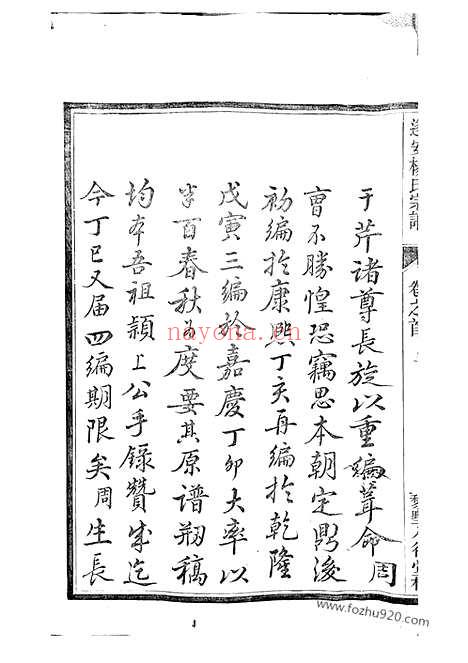 遂安楊氏宗譜
卷之首
于芹諸尊長旋以重編葺命周
曹不勝惶恐竊思本朝定鼎後
初編於康熙丁亥再編於乾隆
戊寅三編於嘉慶丁卯大率以
半百春秋為度要其原譜刱稿
均本吾祖穎上公手錄贊成迄
今丁巳又届四編期限矣周生長
nayona.cn
www.fozhu920.com